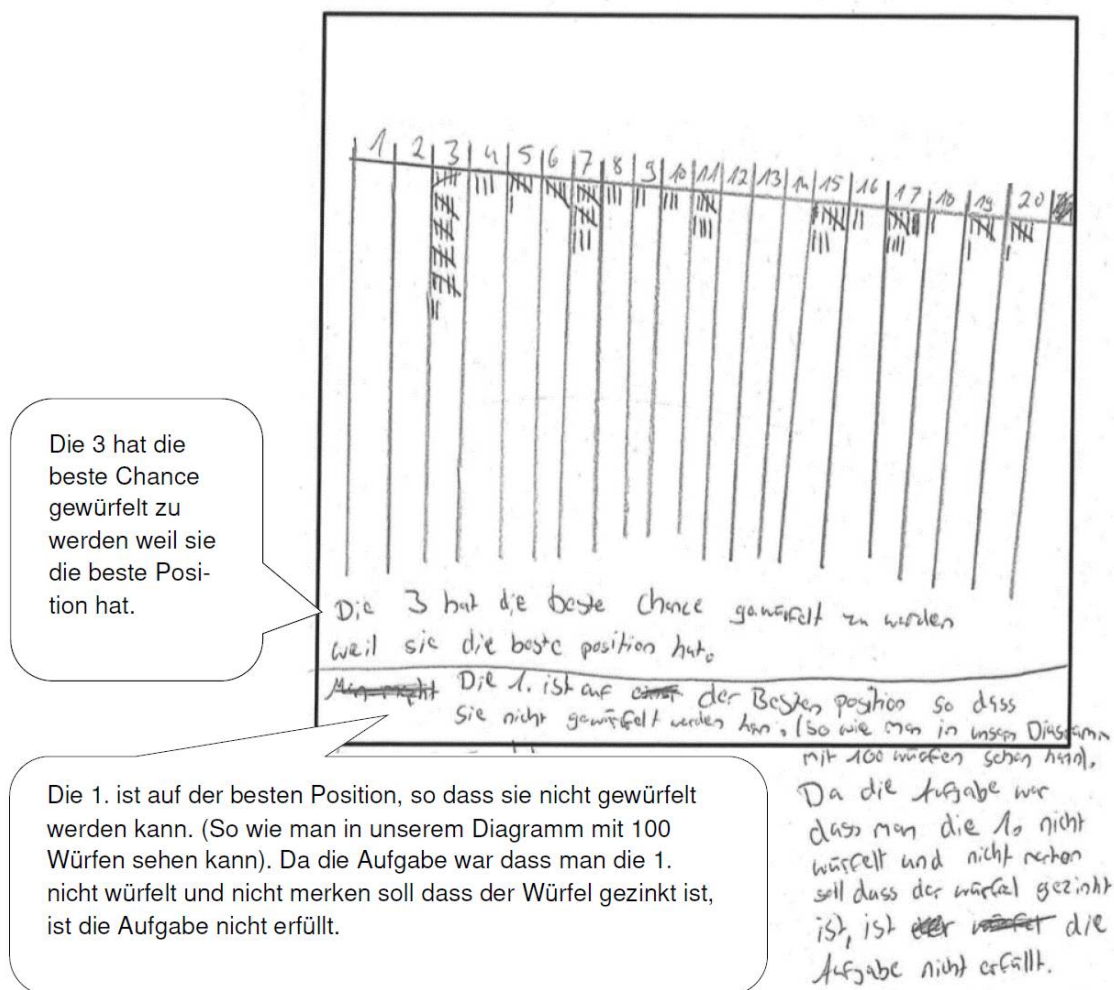 1 2 3 4 5 6 7 8 9 10 11 12 13 14 15 16 17 18 19 20
Die 3 hat die
beste Chance
gewürfelt zu
werden weil sie
die beste Posi-
tion hat.
Die 3 hat die beste Chance gewürfelt zu werden
weil sie die beste position hat.
Die 1. ist auf der Besten position so dass
sie nicht gewürfelt werden kan. (so wie man in unsern Diagramm
mit 100 würfen sehen kann).
Da die Aufgabe war
dass man die 1. nicht
würfelt und nicht merken
soll dass der würfel gezinkt
ist, ist die
Aufgabe nicht erfüllt.
Die 1. ist auf der besten Position, so dass sie nicht gewürfelt
werden kann. (So wie man in unserem Diagramm mit 100
Würfen sehen kann). Da die Aufgabe war dass man die 1.
nicht würfelt und nicht merken soll dass der Würfel gezinkt ist,
ist die Aufgabe nicht erfüllt.